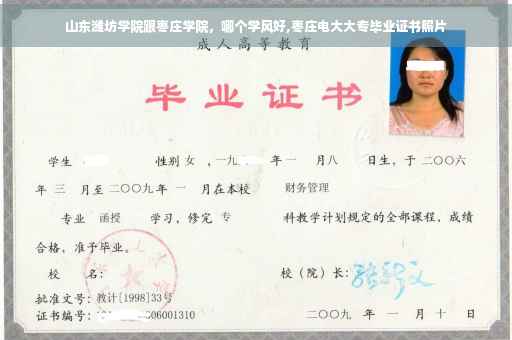 山东潍坊学院跟枣庄学院，哪个学风好,枣庄电大大专毕业证书照片
成人高等教育
毕业证书
学生 性别 女 ,一九 年一 月八 日生，于二〇〇六
年 三 月至二〇〇九年 一 月在本校 财务管理
专业 函授 学习，修完 专 科教学计划规定的全部课程，成绩
合格，准予毕业。
校 名： 校（院）长：
批准文号：教计[1998]33号
证书编号： 06001310 二〇〇九 年 一 月 十 日